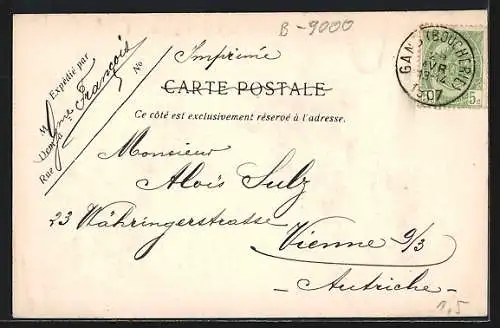 B-9000
Imprimé
Expédié par
M
Dem.
Rue
No
me François
CARTE POSTALE
Ce côté est exclusivement réservé à l'adresse.
GAND (BOUCHERIE)
AVR
1907
5c
Monsieur
Alois Sulz
23 Währingerstrasse
Vienne 9/3
- Autriche -
1,5